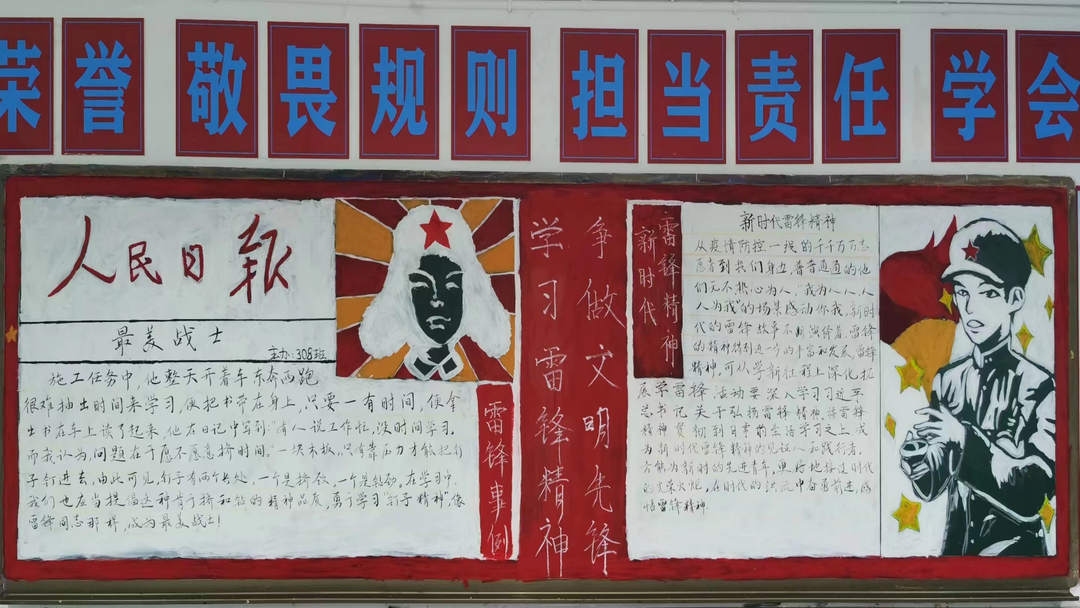 荣誉 敬畏 规则 担当 责任 学会
人民日报
最美战士
主办:308班
施工任务中，他整天开着车东奔西跑
很难抽出时间来学习，便把书带在身上，只要一有时间，便拿
出书在车上读了起来，他在日记中写到:"有人说工作忙，没时间学习，
而我认为，问题在于愿不愿意挤时间。"一块木板，只有靠压力才能把钉
子钉进去，由此可见，钉子有两个长处，一个是挤劲，一个是钻劲，在学习中，
我们也应当提倡这种肯于挤和钻的精神品质，勇于学习"钉子精神"，像
雷锋同志那样，成为最美战士!
雷锋事例
争做文明先锋
学习雷锋精神
雷锋精神
新时代
新时代雷锋精神
从疫情防控一线的千千万万志
愿者到我们身边普普通通的他
们无不热心为人，"我为人人，人
人为我"的场景感动你我，新时
代的雷锋故事不断演绎着，雷锋
的精神得到进一步的丰富和发展，雷锋
精神，可从学新征程上深化拓
展学雷锋 活动要 深入学习习近平
总书记 关于弘扬雷锋 精神，将雷锋
精神贯彻到日常的生活学习之上 成
为新时代雷锋精神的见证人和践行者，
方能为新时的先进青年，更好地接过时代
的 火炬，在时代的洪流中奋勇前进，感
悟雷锋精神